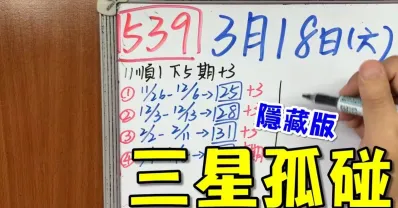 539 3月18日(六)
11順1下5期+3
① 11/26-12/6→25+3
② 12/3-12/13→28
③ 2/2-2/11→31+3
隱藏版
三星孤碰